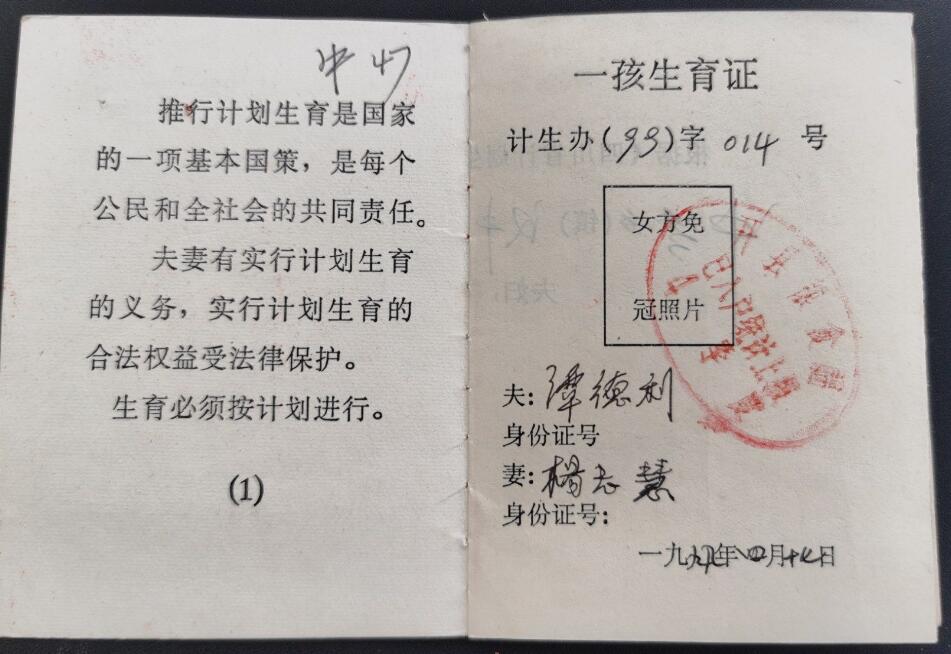 推行计划生育是国家
的一项基本国策，是每个
公民和全社会的共同责任。
夫妻有实行计划生育
的义务，实行计划生育的
合法权益受法律保护。
生育必须按计划进行。
(1)
一孩生育证
计生办(99)字 014 号
女方免
冠照片
夫: 谭德利
身份证号
妻: 杨志慧
身份证号: